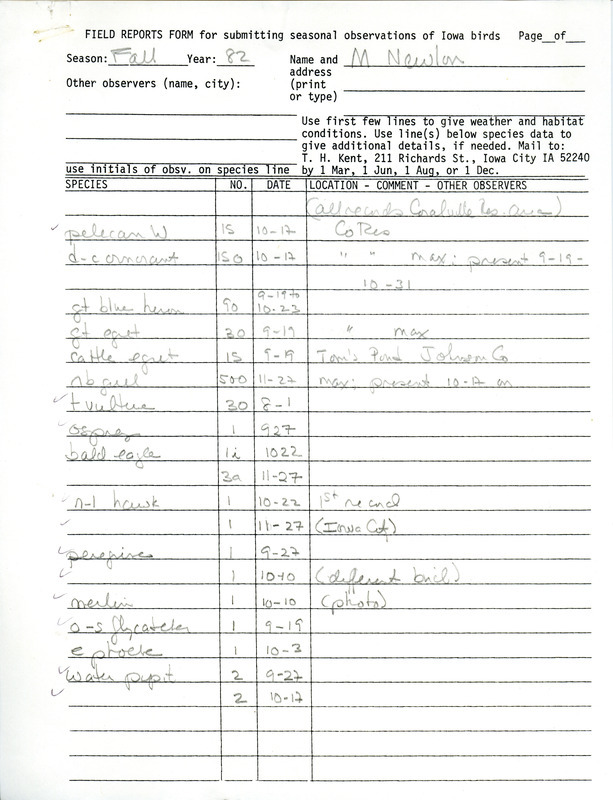 FIELD REPORTS FORM for submitting seasonal observations of Iowa birds Page__of___
Season: Fall Year: 82 Name and address (print or type) M Newlon
Other observers (name, city):
Use first few lines to give weather and habitat
conditions. Use line(s) below species data to
give additional details, if needed. Mail to:
T. H. Kent, 211 Richards St., Iowa City IA 52240
use initials of obsv. on species line by 1 Mar, 1 Jun, 1 Aug, or 1 Dec.
SPECIES NO. DATE LOCATION - COMMENT - OTHER OBSERVERS
(all records Coralville Res. area)
✓ pelecan W 15 10-17 Co Res
d-c cormorant 150 10-17 " " max; present 9-19-
10-31
gt blue heron 90 9-19 to 10-23
gt egret 30 9-19 " max
cattle egret 15 9-19 Tom's Pond Johnson Co
rb gull 500 11-27 max; present 10-17 on
✓ t vulture 30 8-1
✓ osprey 1 927
bald eagle 1i 1022
3a 11-27
✓ r-l hawk 1 10-22 1st record
✓ 1 11-27 (Iowa City)
✓ peregrine 1 9-27
✓ 1 10-10 (different bird)
✓ merlin 1 10-10 (photo)
✓ o-s flycatcher 1 9-19
e phoebe 1 10-3
✓ Water pipit 2 9-27
✓ 2 10-17